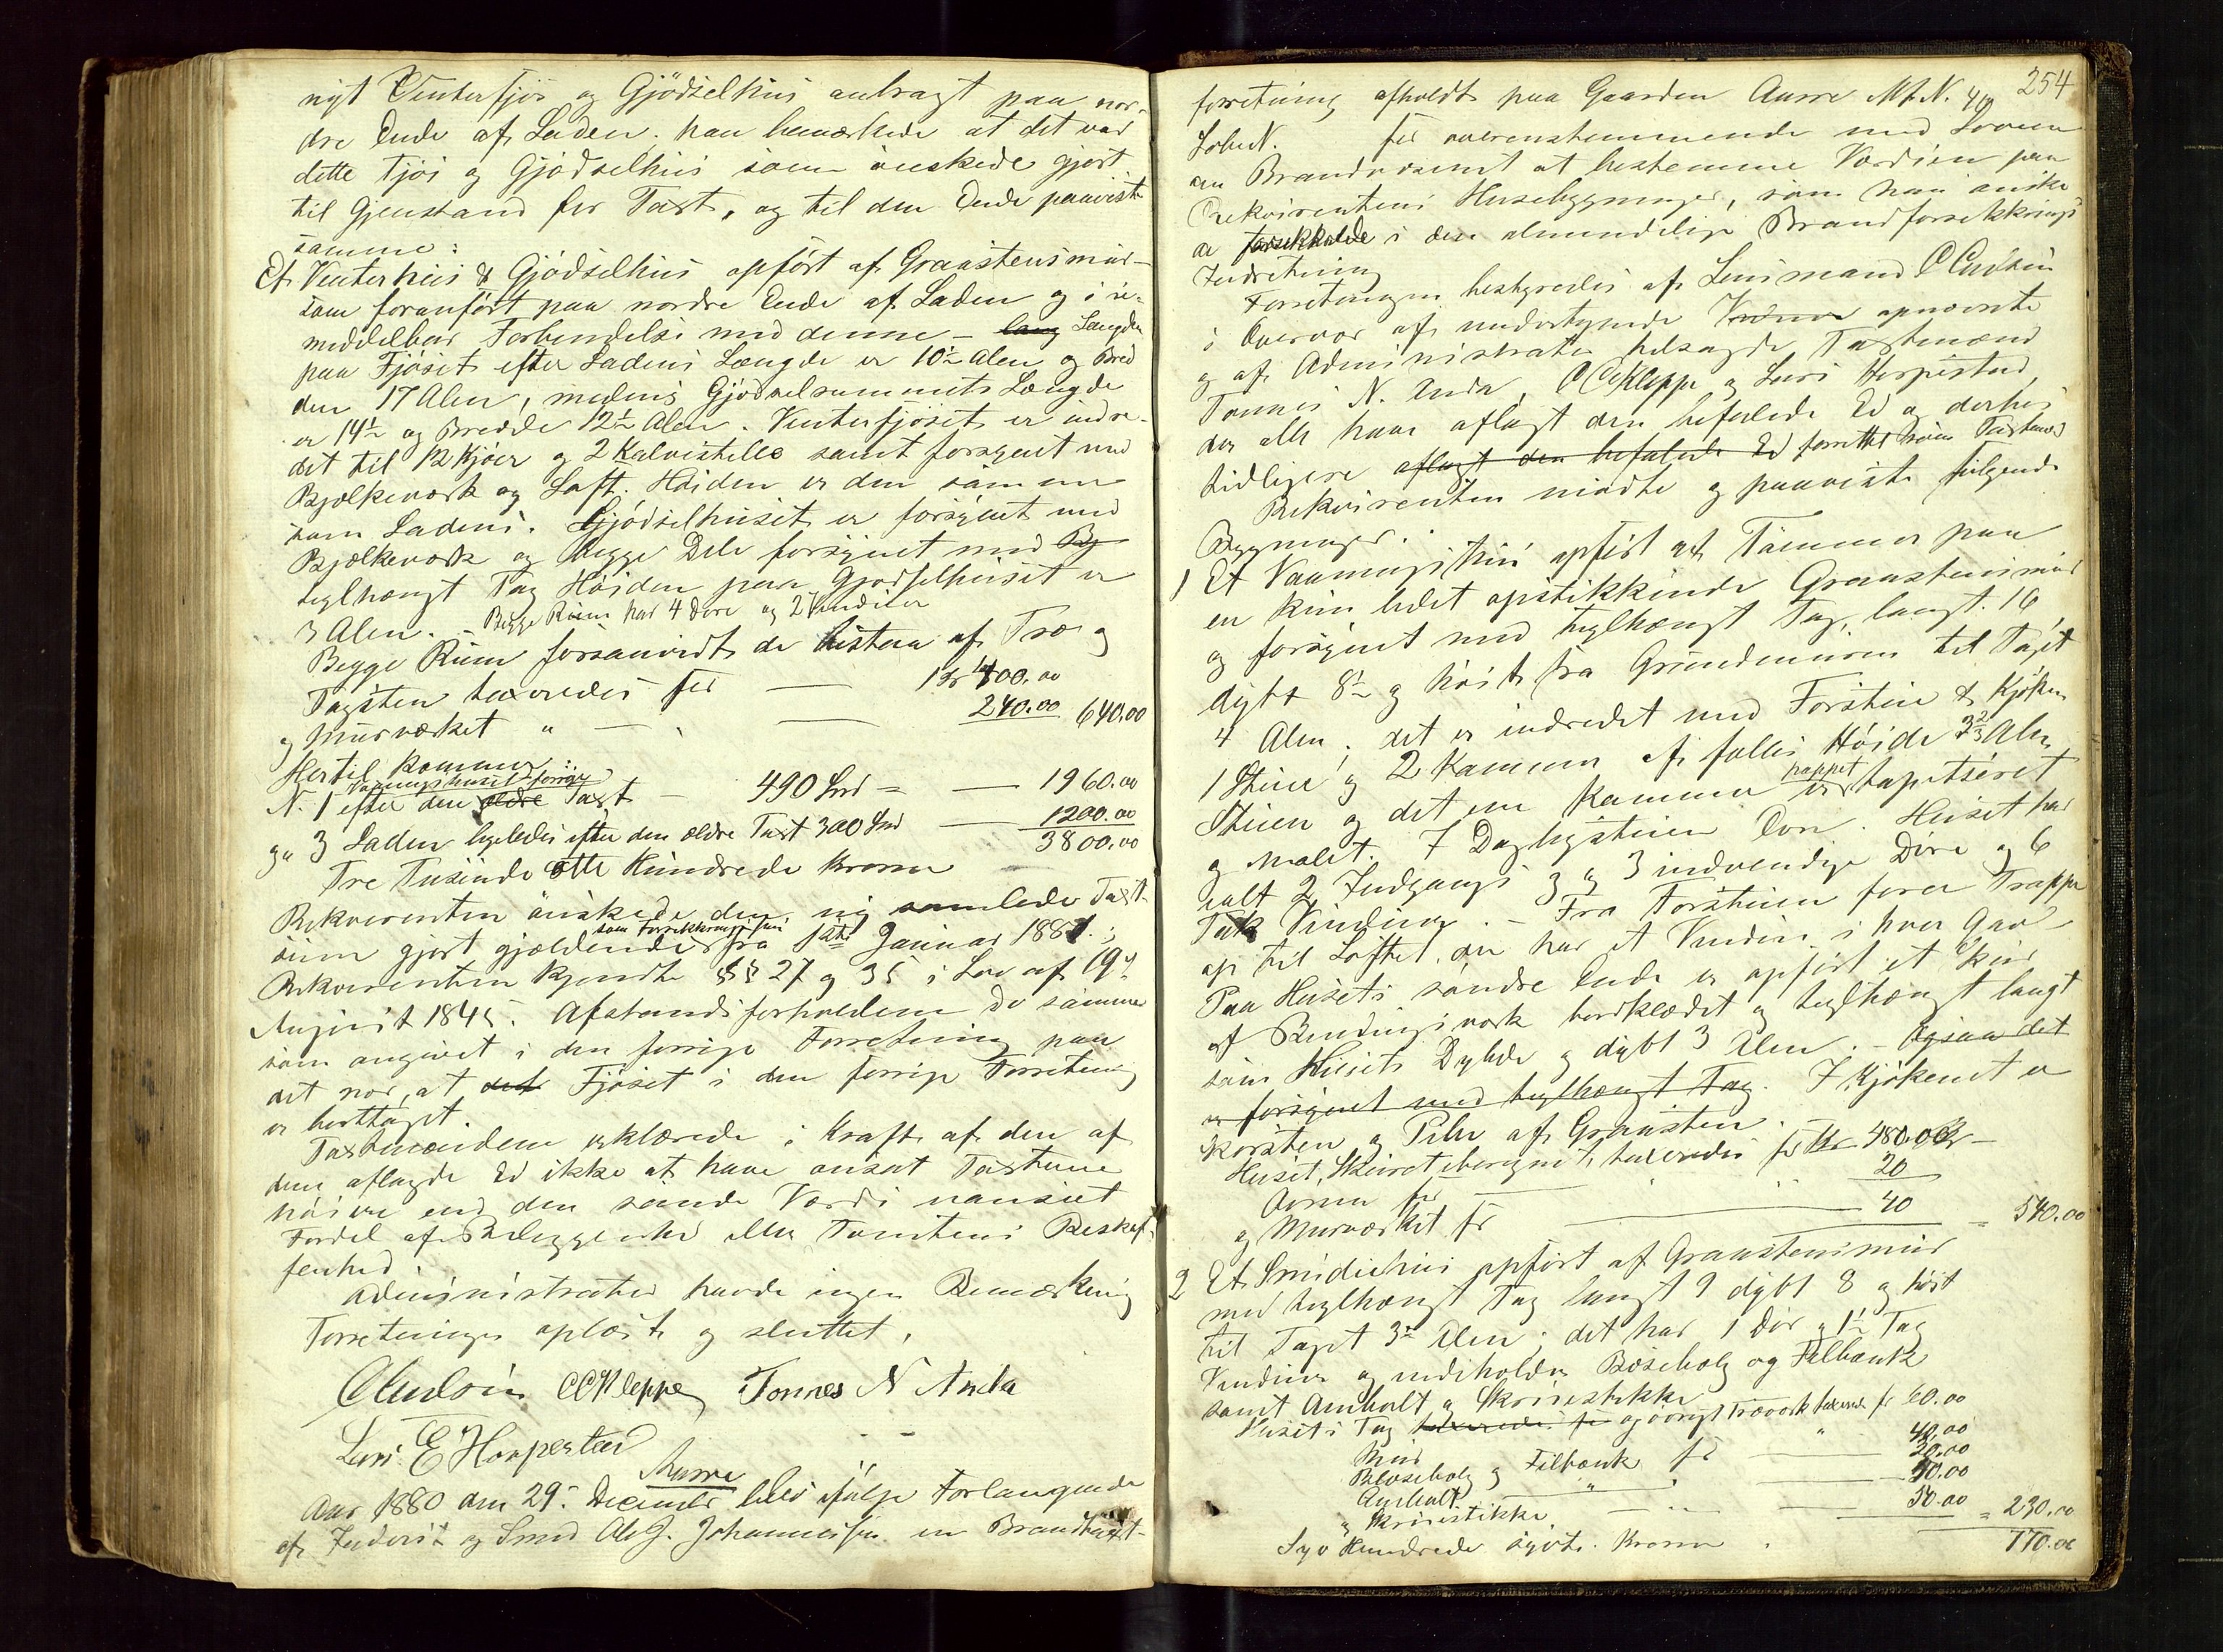 nyt Vinterfjös og Gjödselhus anbragt paa nor-
dre Ende af Laden; han bemærkede at det var
dette Fjös og Gjödselhus som önskede gjort
til Gjenstand for Taxt, og til den Ende paaviste
samme:
Et Vinterhus & Gjödselhus opfört af Graastensmur
som foranfört paa nordre Ende af Laden og i u-
middelbar Forbindelse med denne – lang Længden
paa Fjöset efter Ladens Længde er 10½ Alen og Bred
den 17 Alen, medens Gjödselrummets Længde
er 14½ og Bredde 12½ Alen. Vinterfjöset er indre-
det til 12 Kjöer og 2 Kalvestelle samt forsynet med
Bjælkeværk og Loft. Höiden er den samme
som Ladens. Gjödselhuset er forsynet med
Bjælkeværk og begge Dele forsynet med Bj
teglhængt Tag Höiden paa Gjödselhuset er
3 Alen. – Begge Rum har 4 Döre og 2 Vinduer
Begge Rum forsaavidt de bestaa af Træ og
Tagsten taxeredes for — Kr 400.00
og Murværket " — 240.00 640.00
Hertil kommer:
N. 1 Vaaningshuset efter den ældre forrige Taxt — 490 Spd = — 1960.00
og " 3 Laden ligeledes efter den ældre Taxt 300 Spd — 1200.00
3800.00
Tre Tusinde otte Hundrede Kroner
Rekvirenten önskede den ny samlede Taxt-
sum gjort gjældende som Forsikkringssum fra 1ste Januar 1881.;
Rekvirenten kjendte §§ 27 og 35 i Lov af 19de
August 1845. Afstandsforholdene de samme
som angivet i den forrige Forretning paa
det nær, at det Fjöset i den forrige Forretning
er borttaget.
Taxtmændene erklærede i Kraft af den af
dem aflagde Ed ikke at have ansat Taxterne
höiere end den sande Værdi uanseet
Fordel af Beliggenhed eller Tomtens Beskaf-
fenhed.
Administrator havde ingen Bemærkning
Forretningen oplæst og sluttet.
CCKleppe Tonnes N Anda
Lars E Horpestad
Aarre
Aar 1880 den 29. December blev ifölge Forlangende
af Inderst og Smed Ole J. Johannessen en Brandtaxt-
254
forretning afholdt paa Gaarden Aarre M.N. 40
LobeN. for overensstemmende med Loven
om Brandvæsenet at bestemme Værdien paa
Rekvirentens Husebygninger, som han önske
de forsikkrede i den almindelige Brandforsikkrings
Indretning
Forretningen bestyredes af Lensmand
i Overvær af undertegnede opnævnte
og af Administrator tilsagte Taxtmænd
Tönnes N. Anda, CCKleppe og Lars Horpestad,
der alle have aflagt den befalede Ed og derhos
tidligere aflagt den befalede Ed forrettet som Taxtmænd
Rekvirenten mödte og paaviste fölgende
Bygninger:
1 Et Vaaningshus opfört af Tömmer paa
en kun lidet opstikkende Graastensmur
og forsynet med teglhængt Tag, langt 16,
dybt 8½ og höit fra Grundmuren til Taget
4 Alen; det er indredet med Forstue & Kjöken
1 Stue og 2 Kamre af fælles Höide 3⅔ Alen,
Stuen og det ene Kammer er pappet tapetseret
og malet. I Dagligstuen Ovn. Huset har
ialt 2 Indgangs og 3 indvendige Döre og 6
Fak Vinduer. – Fra Forstuen förer Trappe
op til Loftet, der har et Vindu i hver Gavl
Paa Husets söndre Ende er opfört et Skur
af Bindingsværk bordklædet og teglhængt langt
som Husets Dybde og dybt 3 Alen. – Ogsaa det
er forsynet med teglhængt Tag. I Kjökenet er
Skorsten og Pibe af Graasten.
Huset, Skuret iberegnet, taxeredes for Kr 480.00
Ovnen for — 20
og Murværket for — 40 = 540.00
2 Et Smidiehus opfört af Graastensmur
med teglhængt Tag langt 9 dybt 8 og höit
til Taget 3½ Alen; det har 1 Dör og 1½ Fag
Vinduer og indeholder Blæsebelg og Filbænk
samt Ambolt og Skruestikke
Husets Tag taxeredes for og övrigt Træværk taxered for 60.00
Mur " 40.00
Blæsebelg og Filbænk for — 20.00
Ambolt " —
" Skruestikke — 50.00 = 230.00
Syv Hundrede sytti Kroner. 770.00